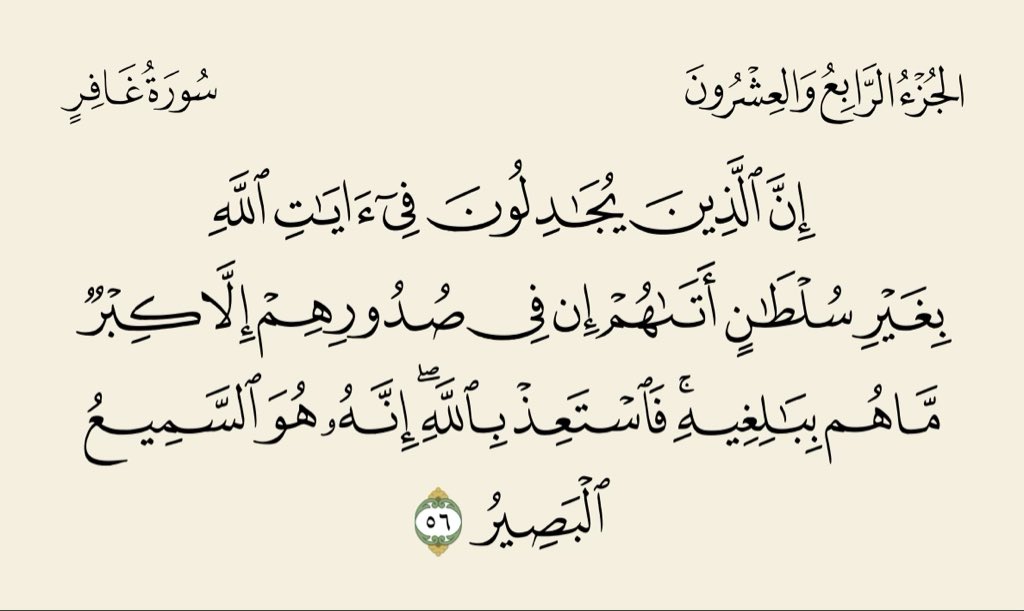 الجُزْءُ الرَّابِعُ وَالعِشْرُونَ سُورَةُ غَافِرٍ
إِنَّ ٱلَّذِينَ يُجَٰدِلُونَ فِىٓ ءَايَٰتِ ٱللَّهِ
بِغَيْرِ سُلْطَٰنٍ أَتَىٰهُمْ إِن فِى صُدُورِهِمْ إِلَّا كِبْرٌ
مَّا هُم بِبَٰلِغِيهِ ۚ فَٱسْتَعِذْ بِٱللَّهِ ۖ إِنَّهُۥ هُوَ ٱلسَّمِيعُ
ٱلْبَصِيرُ ٥٦